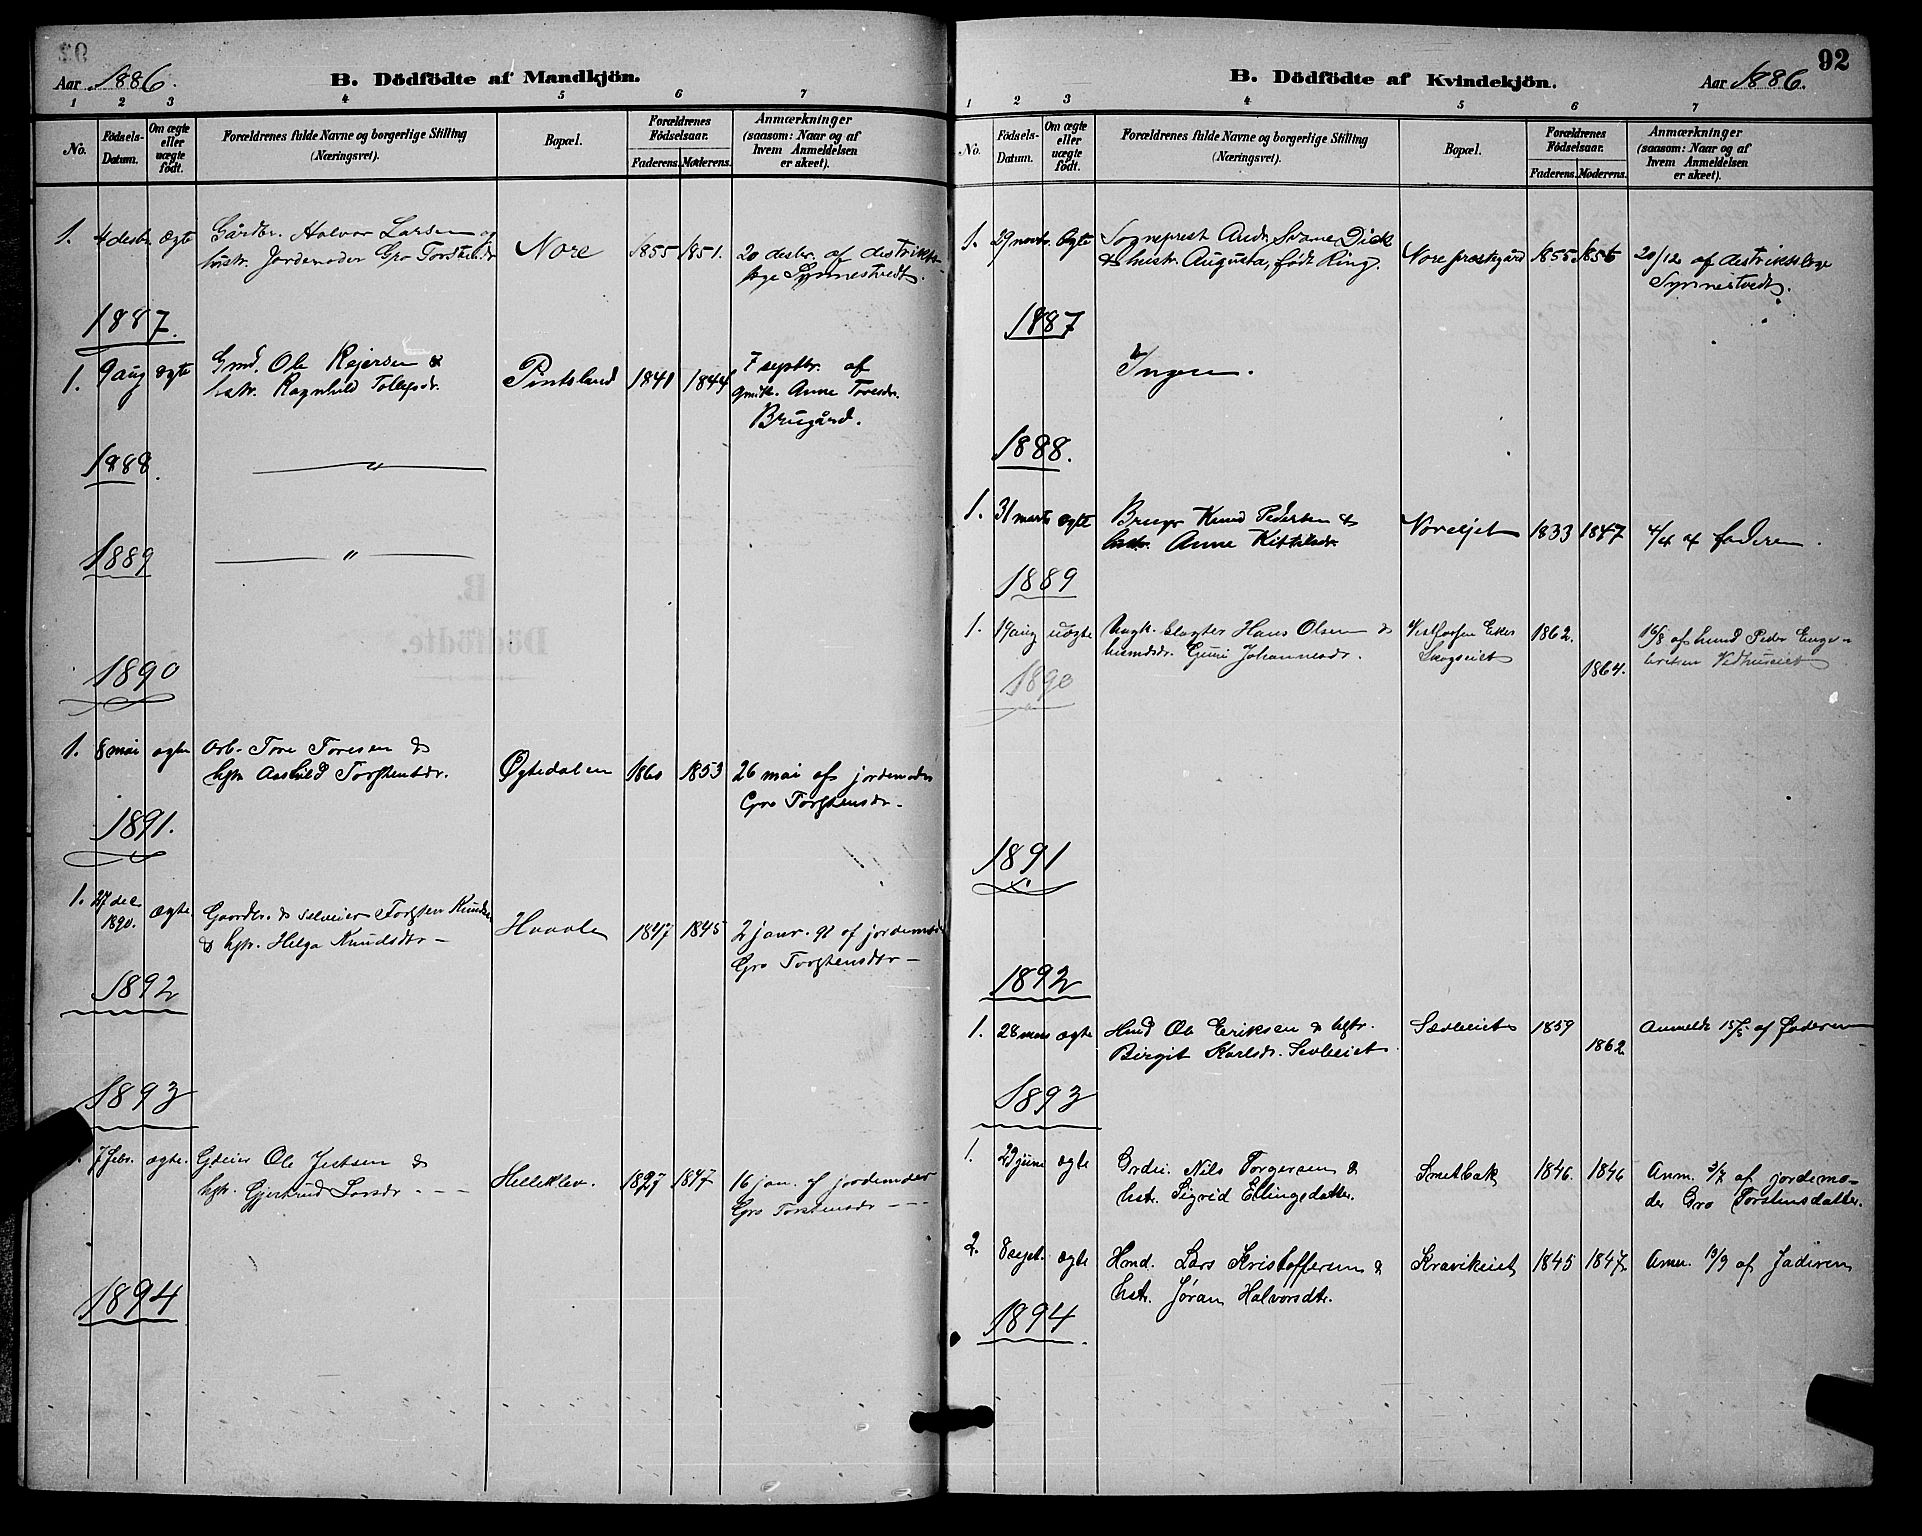 Aar 1886.
B. Dödfödte af Mandkjön.
1 2 3 4 5 6 7
No.
Födsels-Datum.
Om ægte eller uægte födt.
Forældrenes fulde Navne og borgerlige Stilling
(Næringsvei).
Bopæl.
Forældrenes Födselsaar.
Faderens. Moderens.
Anmærkninger
(saasom: Naar og af
hvem Anmeldelsen
er skeet).
1. 4 desbr. ægte Gårdbr. Halvor Larsen og Nore 1855 1851. 20 desbr. af distrikts-
hustr. Jordemoder Gro Torstendr læge Synnestvedt.
1887.
1. 9 aug ægte Gmd. Ole Reiersen & Pintsland 1841 1844 7 septbr. af
hstr. Ragnhild Tollefsdr. gmdk. Anne Toresdr.
Brugård.
1888.
"
1889
"
1890
1. 8 mai ægte Arb. Tore Toresen & Øgtedalen 1860 1853 26 mai af jordemoder
hstr Aashild Torstensdr. Gro Torstensdr
1891.
1. 27 dec 1890. ægte. Gaardbr. & selveier Torsten Knudsen Haavle 1847 1845 2 janr. 91 af jordemoder
& hstr. Helga Knudsdtr Gro Torstensdtr
1892
1893
7 febr. ægte. Gdeier Ole Jertsen & Helleklev. 1827 1847 16 jan. af jordemoder
hstr. Gjertrud Larsdr Gro Torstensdr
1894
92
B. Dödfödte af Kvindekjön.
Aar 1886.
1 2 3 4 5 6 7
No.
Födsels-Datum.
Om ægte eller uægte födt.
Forældrenes fulde Navne og borgerlige Stilling
(Næringsvei).
Bopæl.
Forældrenes Födselsaar.
Faderens. Moderens.
Anmærkninger
(saasom: Naar og af
hvem Anmeldelsen
er skeet).
1. 29 novbr. ægte Sogneprest Andr. Svane Dick Nore prestgård 1855 1856 20/12 af distriktslæge
& hustr. Augusta, født Ring. Synnestvedt.
1887
Ingen.
1888.
1. 31 marts ægte Brugr Knud Pedersen & Noreljet 1833 1847 4/4 af faderen.
hstr. Anne Kittilsdr.
1889
1. 19 aug uægte Ungk. slagter Hans Olsen & Vestfossen Eker 1862. 16/8 af husmd Peder Enge-
husmdsdr. Guni Johannesdr. Skogseiet 1864. bretsen Vidhuseiet
1890
1891
1892
1. 28 mars ægte Hmd Ole Eriksen & hstr. Sævleiet 1859 Anmeldt 15/5 af faderen
Birgit Karlsdr. Sevleiet 1862
1893
1. 29 juni ægte Grdei. Nils Torgersen & Smetbak 1846. 1846 Anm. 3/7 af jordemo-
hst. Sigrid Ellingsdatter. der Gro Torstensdatter.
2. 8 sept. ægte Hmd. Lars Kristoffersen & Kravikeiet 1845 1847 Anm. 19/9 af faderen
hstr. Jøran Halvorsdtr.
1894